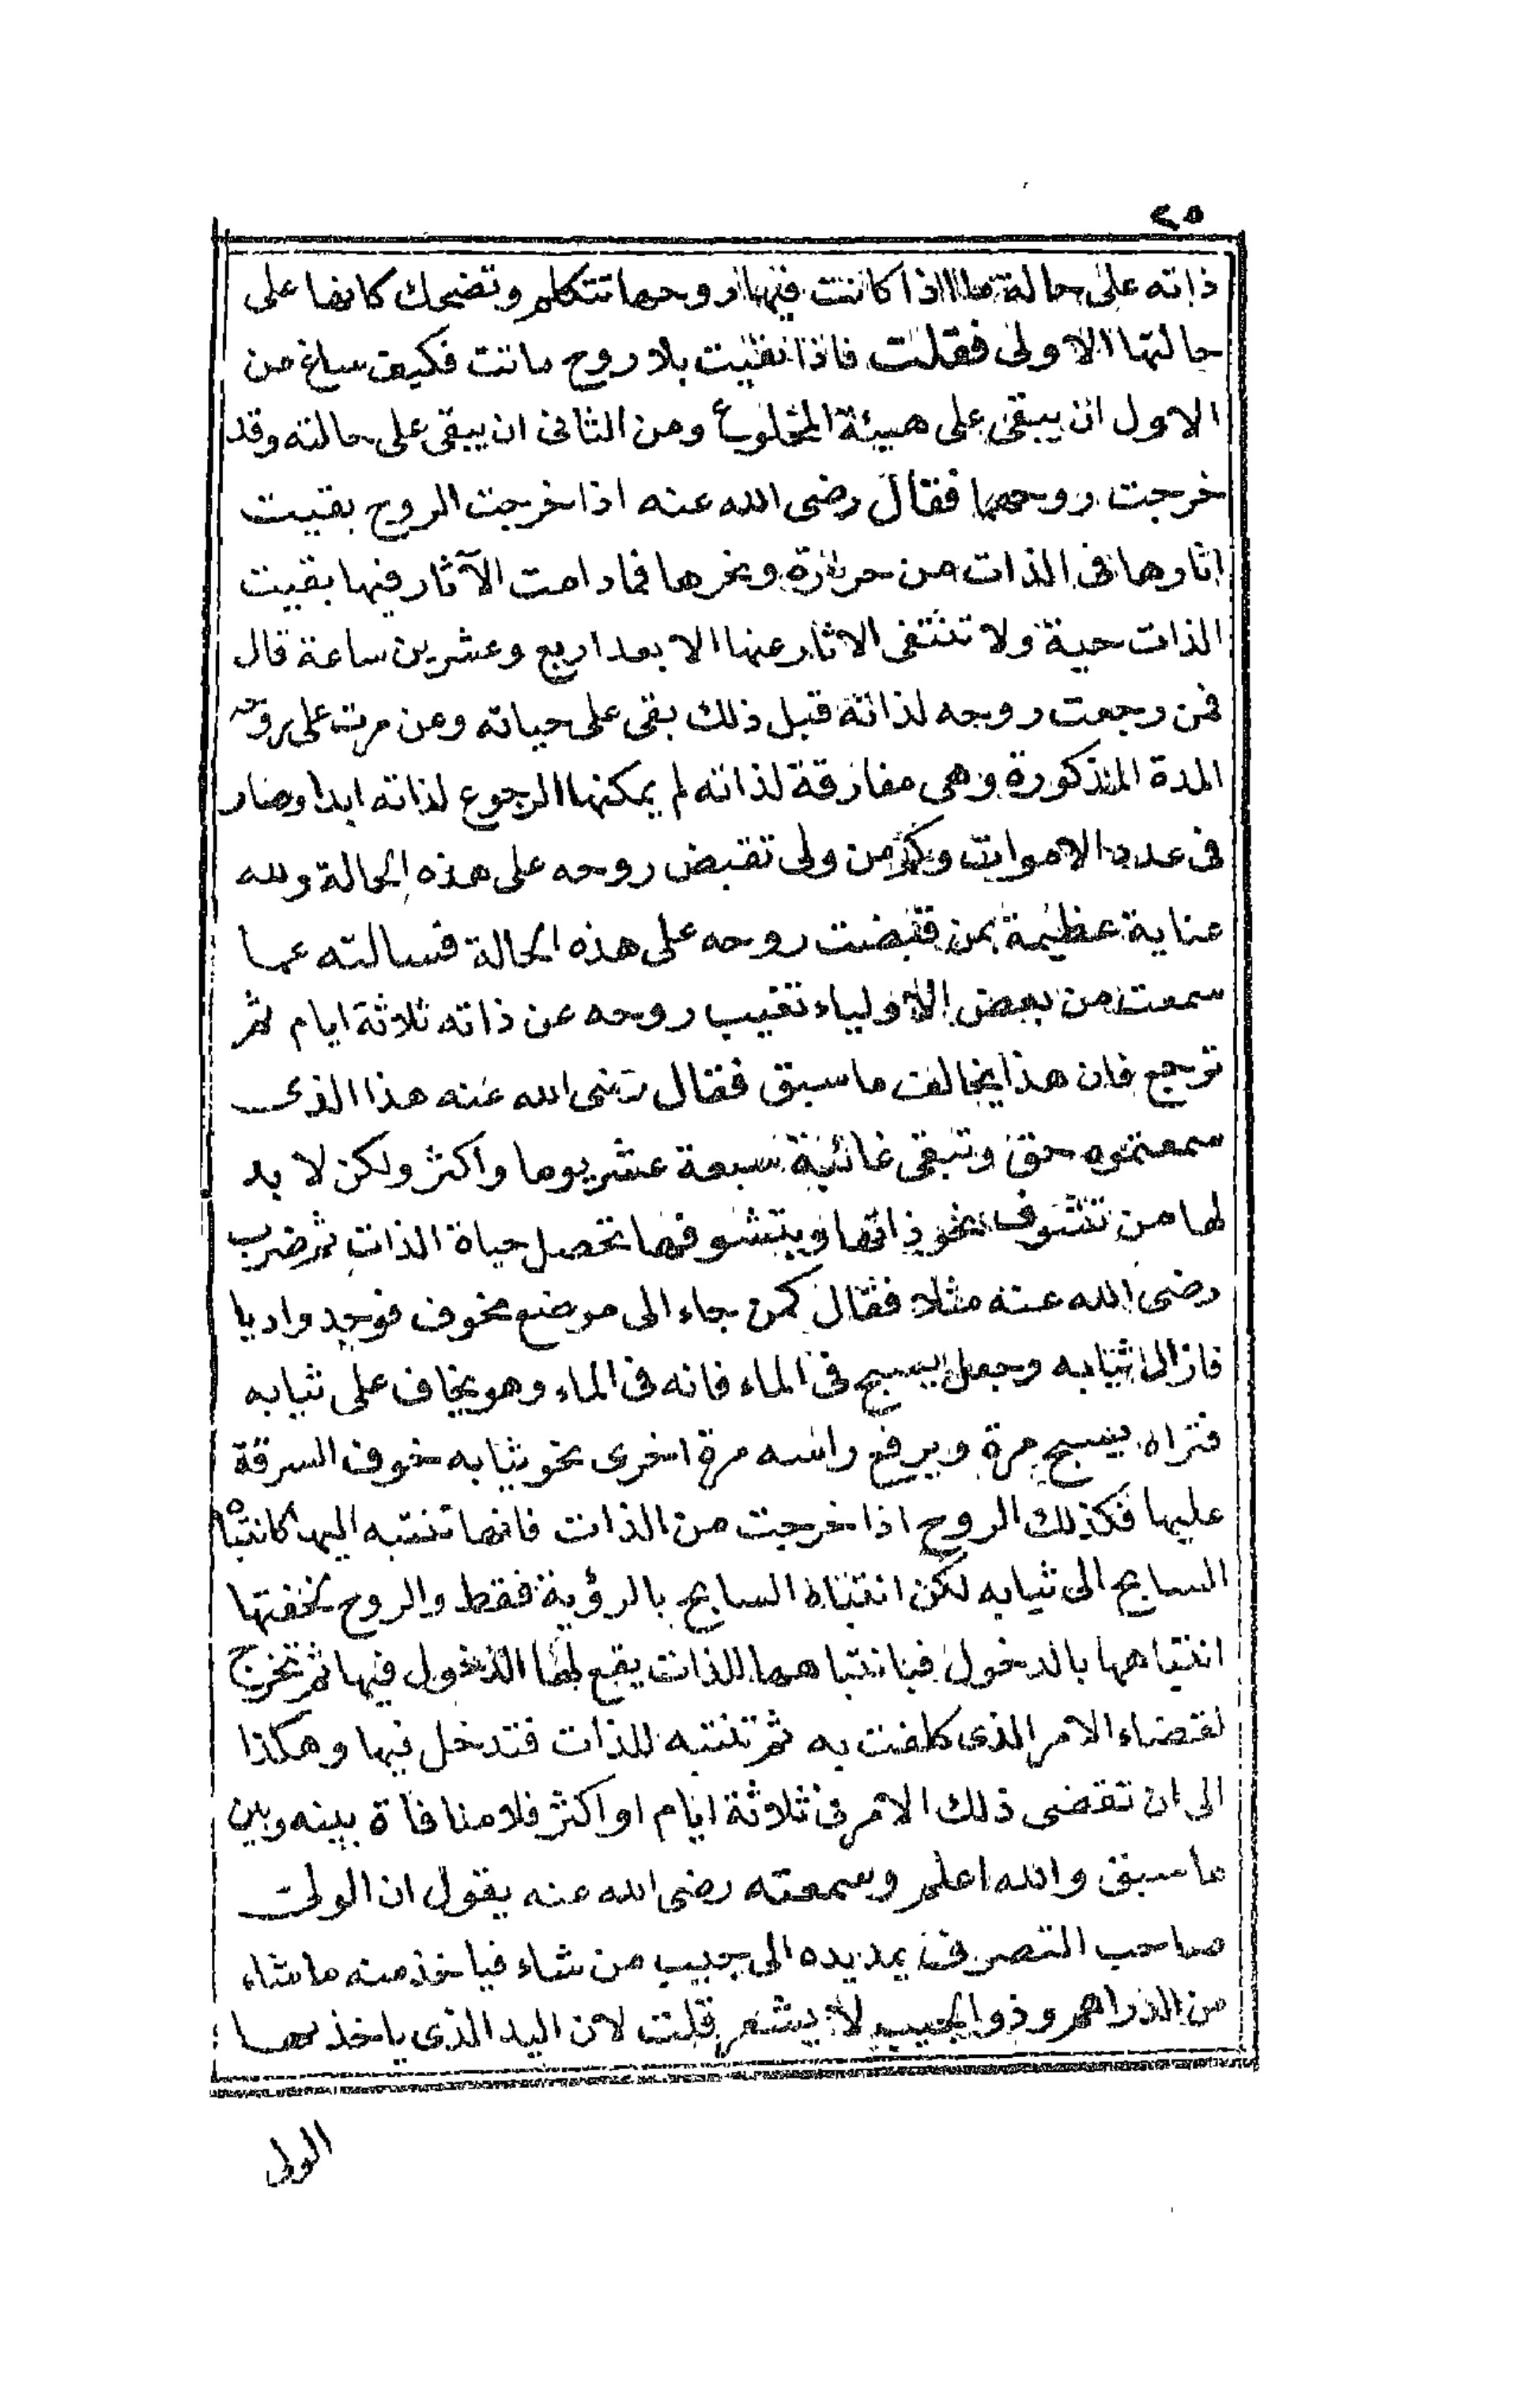 ٢٥
ذاته على حالة ما اذا كانت فيها روحها تتكلم وتضحك كانها على
حالتها الاولى فقلت فاذا بقيت بلا روح ماتت فكيف ساغ من
الاول ان يبقى على هيئة المخلوع ومن الثانى ان يبقى على حالته وقد
خرجت روحهما فقال رضى الله عنه اذا خرجت الروح بقيت
اثارها فى الذات من حرارة ونحوها فمادامت الآثار فيها بقيت
الذات حية ولا تنتفى الاثار عنها الا بعد اربع وعشرين ساعة قال
فمن رجعت روحه لذاته قبل ذلك بقى على حياته ومن مرت على روحه
المدة المذكورة وهى مفارقة لذاته لم يمكنها الرجوع لذاته ابدا وصار
فى عدد الاموات وكم من ولى تقبض روحه على هذه الحالة ولله
عناية عظيمة بمن قبضت روحه على هذه الحالة فسالته عما
سمعت من بعض الاولياء تغيب روحه عن ذاته ثلاثة ايام ثم
ترجع فان هذا يخالف ما سبق فقال رضى الله عنه هذا الذى
سمعتموه حق وتبقى غائبة سبعة عشر يوما واكثر ولكن لا بد
لها من تشوف نحو ذاتها وبتشوفها تحصل حياة الذات ثم ضرب
رضى الله عنه مثلا فقال كمن جاء الى موضع مخوف فوجد واديا
فازال ثيابه وجعل يسبح فى الماء فانه فى الماء وهو يخاف على ثيابه
فتراه يسبح مرة ويرفع راسه مرة اخرى نحو ثيابه خوف السرقة
عليها فكذلك الروح اذا خرجت من الذات فانها تنتبه اليها كانتباه
السابح الى ثيابه لكن انتباه السابح بالرؤية فقط والروح لخفتها
انتباهها بالدخول فبانتباهها للذات يقع لها الدخول فيها ثم تخرج
لقضاء الامر الذى كلفت به ثم تنتبه للذات فتدخل فيها وهكذا
الى ان تقضى ذلك الامر فى ثلاثة ايام او اكثر فلا منافاة بينه وبين
ما سبق والله اعلم وسمعته رضى الله عنه يقول ان الولى
صاحب التصرف يمد يده الى جيب من شاء فياخذ منه ماشاء
من الدراهم وذو الجيب لا يشعر قلت لان اليد الذى ياخذ بها
الولى